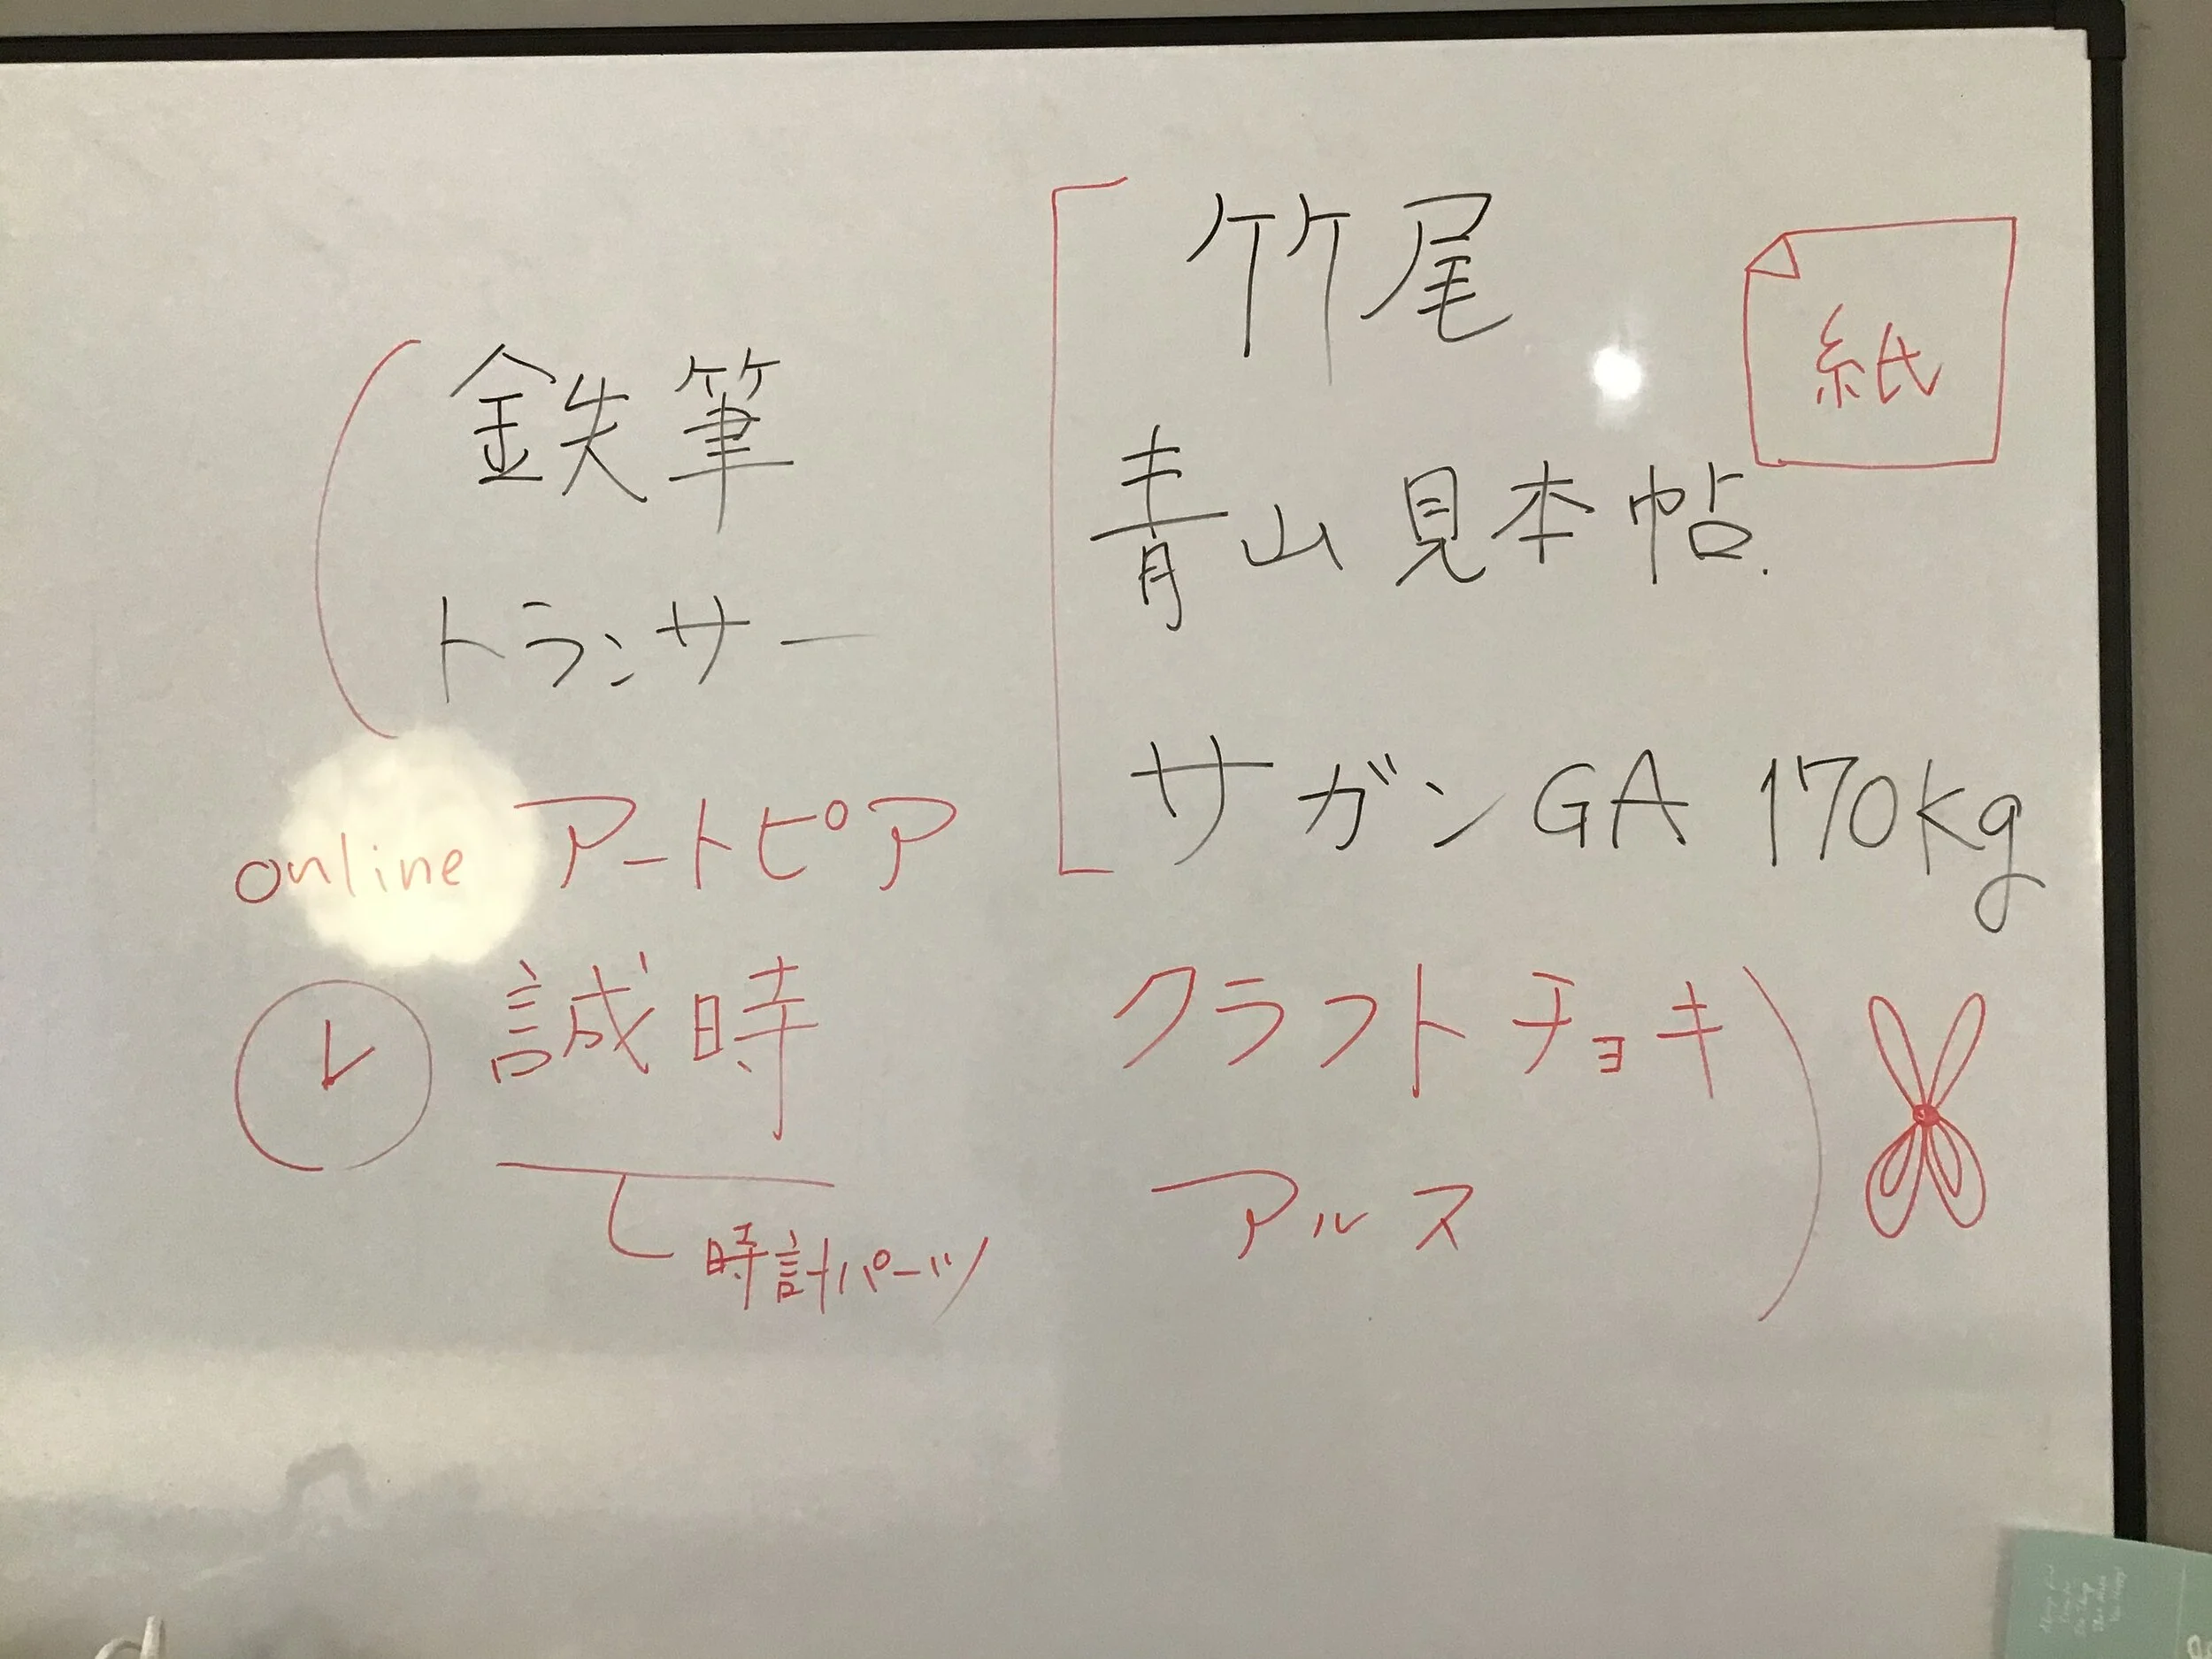 鉄筆
トランサー
online アートピア
誠時
時計パーツ
竹尾
紙
青山見本帖.
サガンGA 170kg
クラフトチョキ
アルス